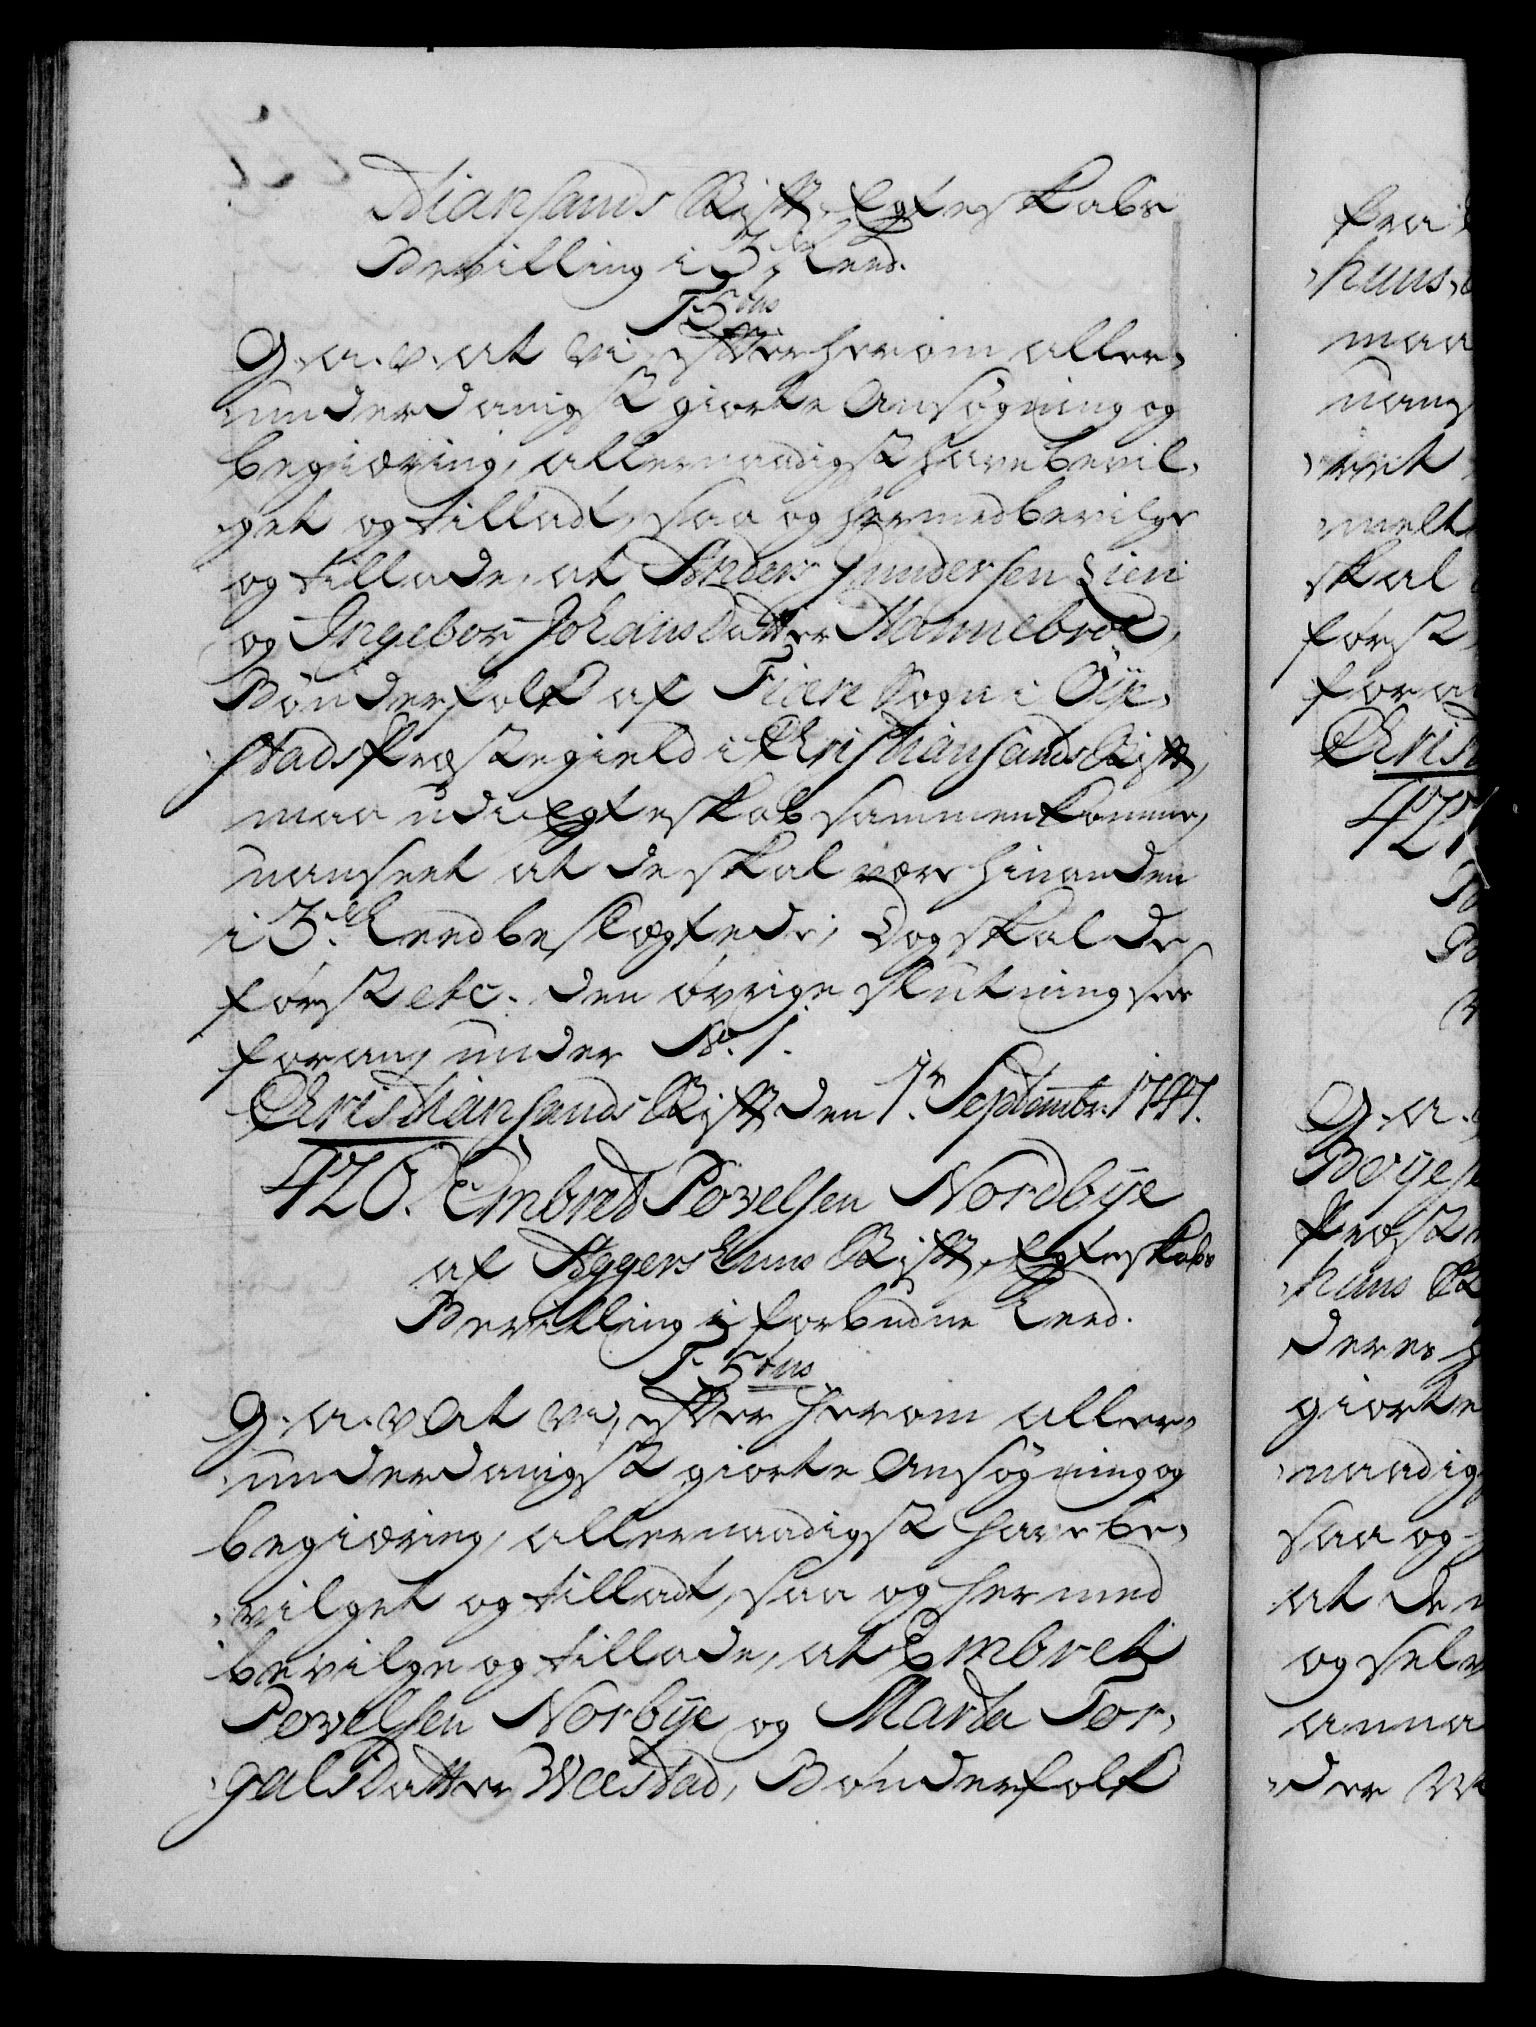 stiansands Stift, Egteskabs
Bevilling i 3die Leed.
F. 5tus
G. a. v. at vi, efter herom aller-
underdanigst giorte Ansøgning og
begiæring, allernaadigst have bevil-
get og tilladt, saa og hermed bevilge
og tillade, at Anders Gundersen Lien
og Ingebor Johansdatter Mannebroe,
Bønderfolk af Fiære Sogn i Øÿe-
stads Præstegield i Christiansands Stift,
maa udi Egteskab sammenkomme,
uanseet at de skal være hinanden
i 3die Leed beslægtede; Dog skal de
først etc. den øvrige Slutning see
foran under No. 1.
Christiansands Stift den 1te Septembr. 1747.
420. Embret Povelsen Nordbÿe
af Aggershuus Stift, Egteskabs
Bevilling i forbudne Leed.
F. 5tus
G. a. v. At vi, efter herom aller-
underdanigst giorte Ansøgning og
begiæring, allernaadigst have be-
vilget og tilladt, saa og hermed
bevilge og tillade, at Embret
Povelsen Norbÿe og Marta Tor-
galsdatter Weestad, Bønderfolk
fra
huus
maa
uans
vet
melt
skal
først
foran
Christ
427
G. a.
Præst
huus St
deres
giorte
naadig
saa og
at de
og selv
anna
der